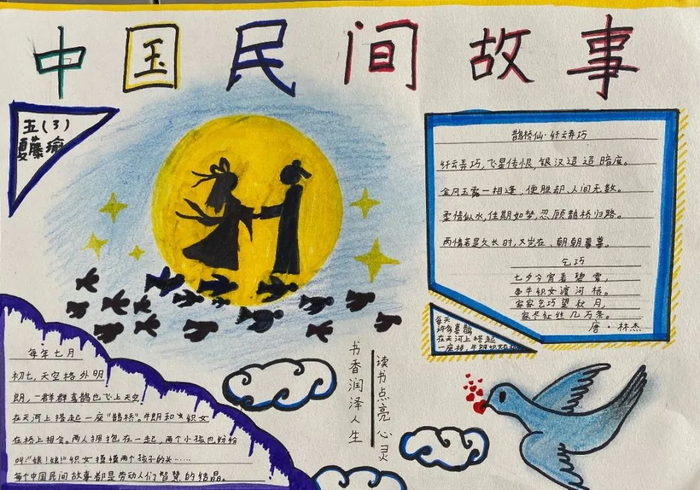 中国民间故事
五(3)
夏藤瑜
鹊桥仙·纤云弄巧
纤云弄巧,飞星传恨,银汉迢迢暗度。
金风玉露一相逢,便胜却,人间无数。
柔情似水,佳期如梦,忍顾鹊桥归路。
两情若是久长时,又岂在,朝朝暮暮。
乞巧
七夕今宵看碧霄,
牵牛织女渡河桥。
家家乞巧望秋月,
穿尽红丝几万条。
唐·林杰
每天
许多喜鹊
在天河上搭起
一座桥,牛郎织女
每年七月
初七,天空格外明
朗,一群群喜鹊也飞上天空
在天河上搭起一座"鹊桥"。牛郎和织女
在桥上相会。两人拥抱在一起,两个小孩也纷纷
叫"娘!娘!"织女摸摸两个孩子的头……
每个中国民间故事都是劳动人们智慧的结晶。
书香润泽人生
读书点亮心灵